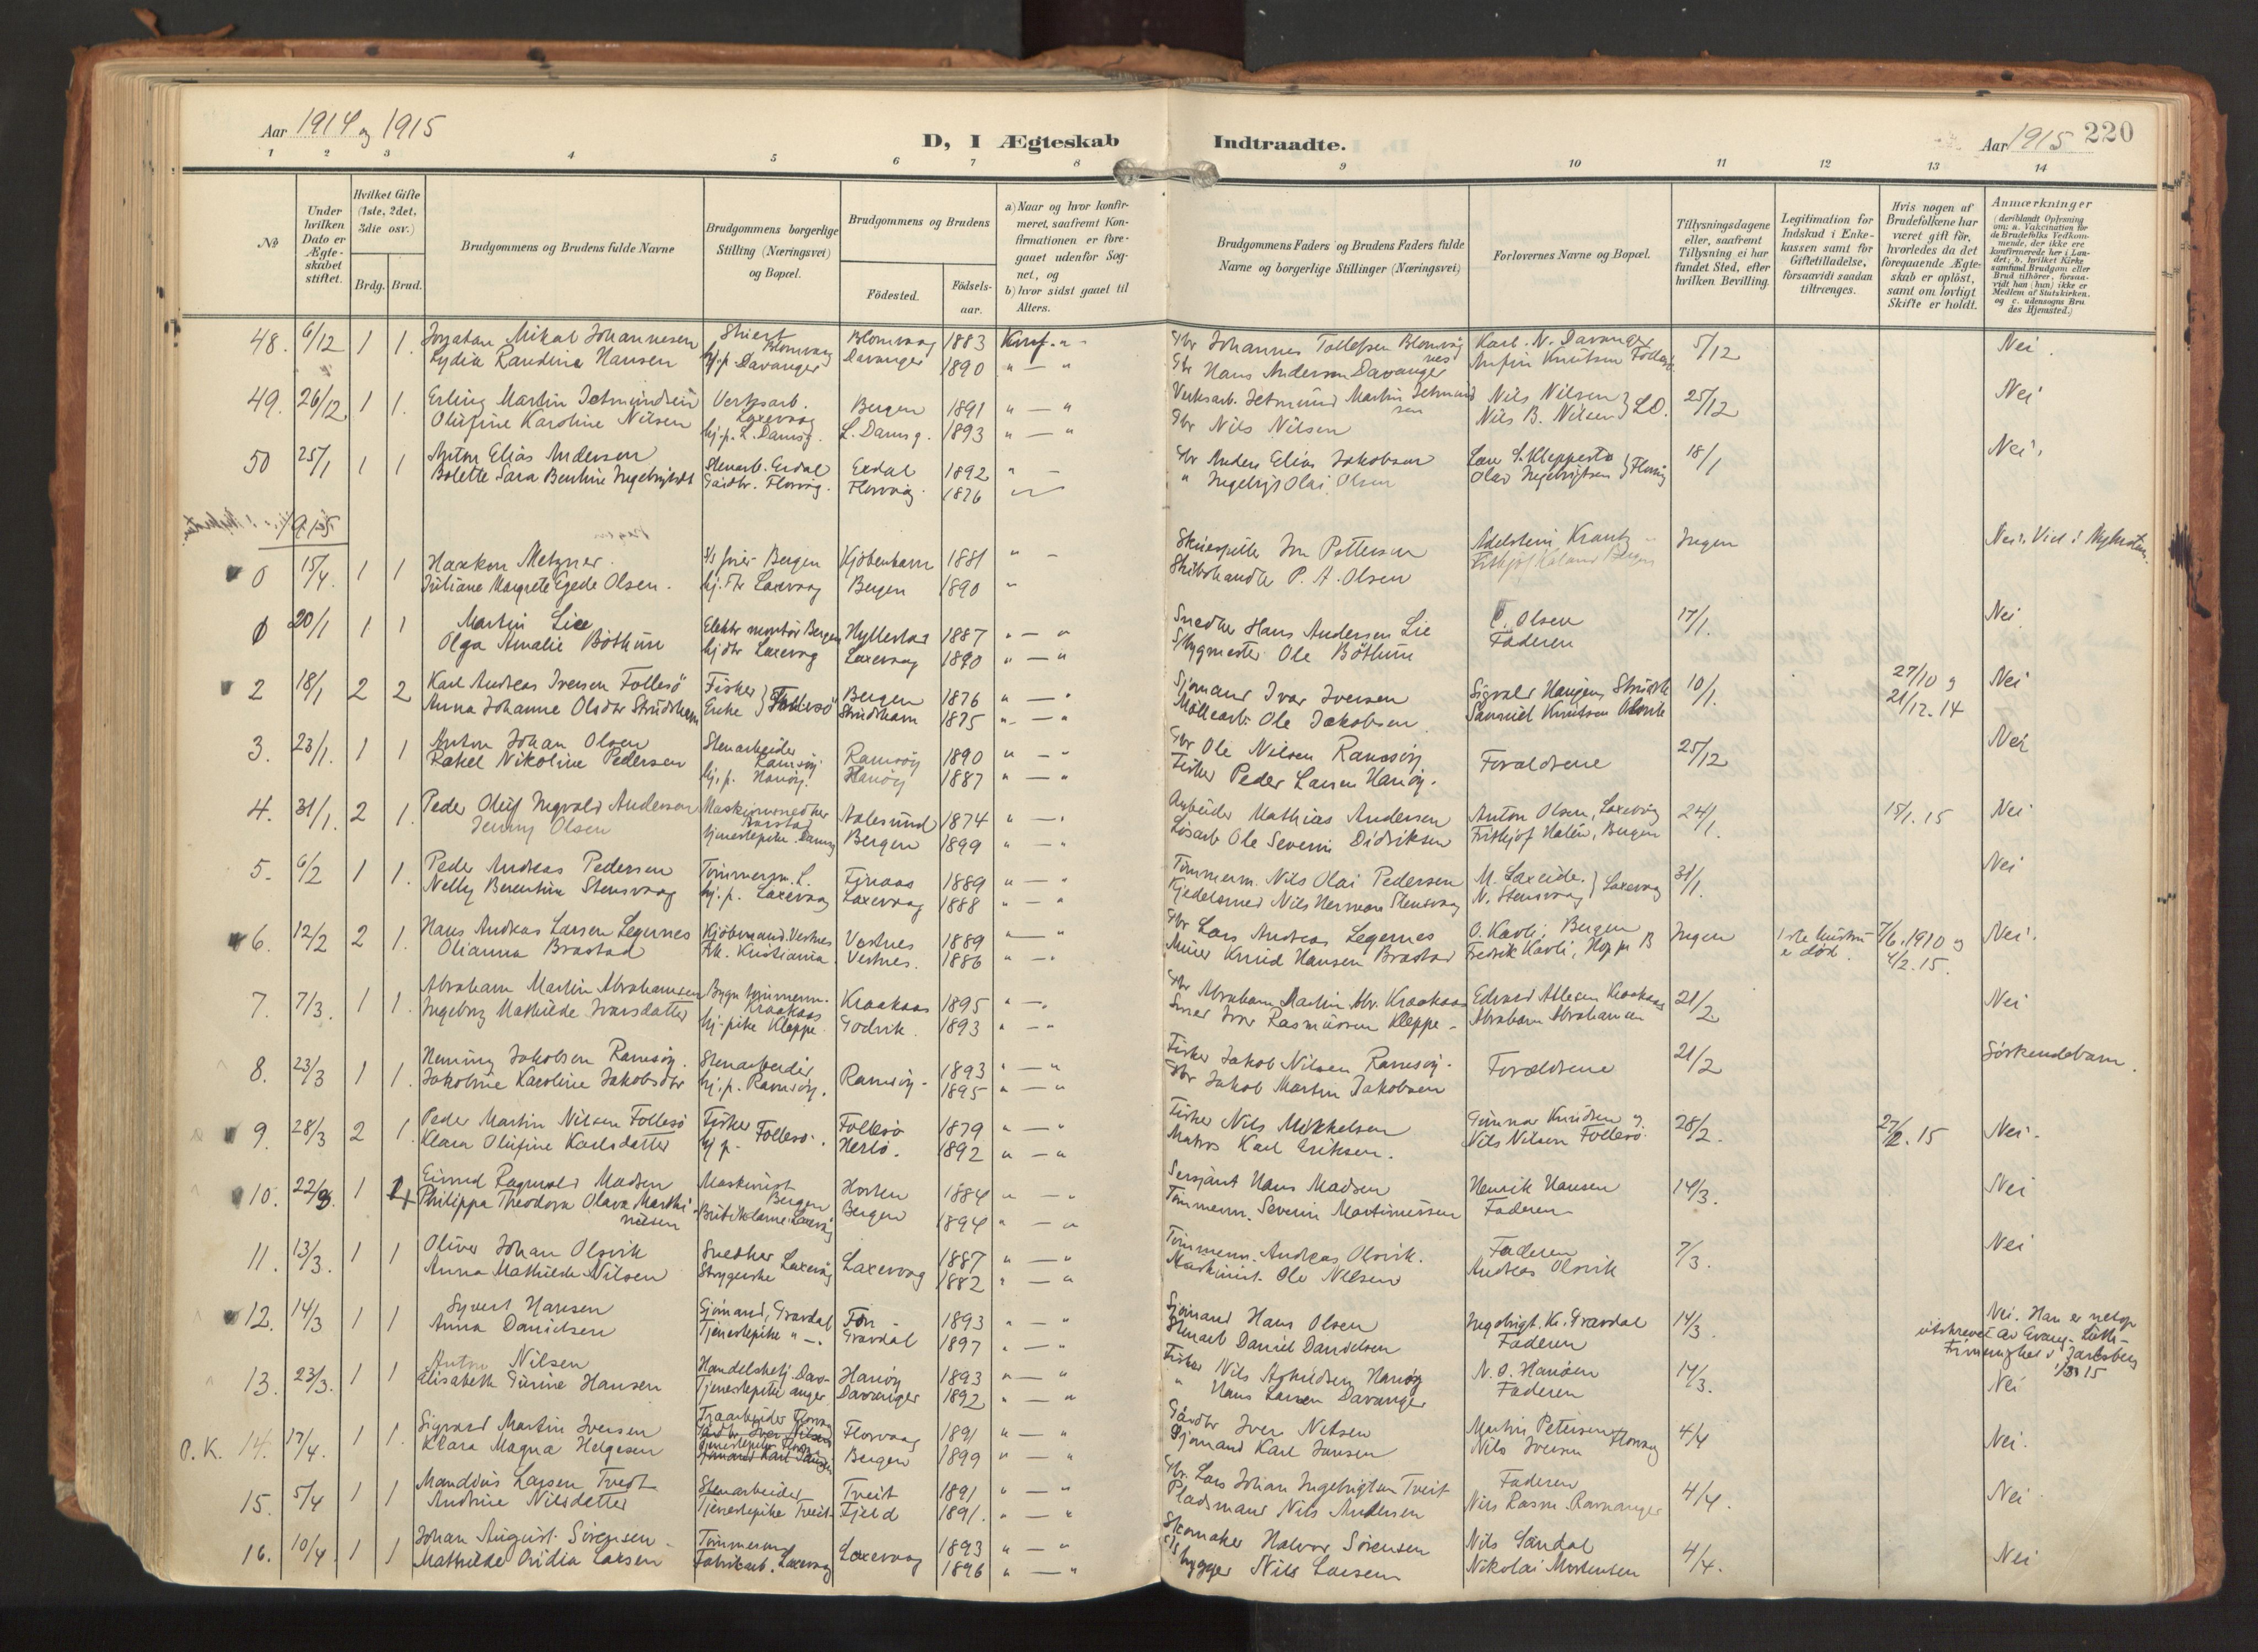 Aar 1914 og 1915
D, I Ægteskab Indtraadte.
Aar 1915 220
1 2 3 4 5 6 7 8 9 10 11 12 13 14
No
Under hvilken Dato er Ægteskabet stiftet.
Hvilket Gifte (1ste, 2det, 3die osv.)
Brdg. Brud.
Brudgommens og Brudens fulde Navne
Brudgommens borgerlige Stilling (Næringsvei) og Bopæl.
Brudgommens og Brudens
Födested.
Födselsaar.
a) Naar og hvor konfirmeret, saafremt Konfirmationen er foregaaet udenfor Sognet, og
b) hvor sidst gaaet til Alters.
Brudgommens Faders og Brudens Faders fulde Navne og borgerlige Stillinger (Næringsvei)
Forlovernes Navne og Bopæl.
Tillysningsdagene eller, saafremt Tillysning ei har fundet Sted, efter hvilken Bevilling.
Legitimation for Indskud i Enkekassen samt for Giftetilladelse, forsaavidt saadan tiltrænges.
Hvis nogen af Brudefolkene har været gift för, hvorledes da det foregaaende Ægteskab er oplöst, samt om lovligt Skifte er holdt.
Anmærkninger
(deriblandt Oplysning om: a. Vakcination for de Brudefolks Vedkommende, der ikke ere konfirmerede her i Landet; b. hvilket Kirkesamfund Brudgom eller Brud tilhörer, forsaavidt han (hun) ikke er Medlem af Statskirken, og c. udensogns Brudes Hjemsted.)
48. 6/12 1 1. Jonatan Mikal Johannesen Blomvaag Blomvaag 1883 Konf. Gbr Johannes Tollefsen Blomvåg Karl. N. Davanger 5/12 Nei.
Lydia Randine Hansen hj. p. Davanger Davanger 1890 Gbr Hans Andersen Davanger Anfin Knutsen
49. 26/12 1 1. Erling Martin Jetmundsen Verksarb. Laxevaag Bergen 1891 Verksarb. Jetmund Martin Jetmundsen Nils Nilsen 25/12 Nei
Olufine Karoline Nilsen hj. p. L. Damsg. L. Damsg. 1893 Gbr Nils Nilsen Nils B. Nilsen L.D.
50 25/1 1 1 Anton Elias Andersen Stenarb. Erdal Erdal 1892 Gbr Anders Elias Jakobsen Lars S. Kleppestø 18/1 Nei.
Bolette Sara Bentine Ingebrigtsdt Gaardbr. Florvåg. Florvaag 1876 " Ingebrigt Olai Olsen Olav Ingebrigtsen Florvåg
1915
0 15/4. 1 1 Haakon Metzner. Bergen Kjöbenhavn 1881 Skuespiller Jon Pettersen Adelstein Krantz Ingen Nei. Viet i Nykirken.
Juliane Margrete Egede Olsen. hj. Dtr Laxevaag Bergen 1890 Skibshandler P. A. Olsen Bergen
20/1 1 1 Martin Lie Elektr montör Bergen Hyllestad 1887 Snedker Hans Andersen Lie O. Olsen 17/1. Nei.
Olga Amalie Böthun hj dtr Laxevaag Laxevaag 1890 Ole Böthun Faderen
2 18/1 2 2 Karl Andreas Iversen Follesö Fisker Follesö Bergen 1876 Sjömand Ivar Iversen 10/1. 27/10 og 21/12.14 Nei
Anna Johanne Olsdtr Strudshavn Enke Strudshavn 1875 Möllearb. Ole Jakobsen Samuel Knutsen
3. 23/1. 1 1 Anton Johan Olsen Stenarbeider Ramsöy Ramsöy 1890 Gbr Ole Nilsen Ramsöy Foraldrene 25/12 Nei
Rakel Nikoline Pedersen hj. p. Hanöy. Hanöy 1887 Fisker Peder Larsen Hanöy.
4. 31/1. 2 1. Peder Oluf Ingvald Andersen Maskinsnedker Aalesund 1874 Arbeider Mathias Andersen Anton Olsen, Laxevåg 24/1. 15/1. 15 Nei
Jenny Olsen tjenestepike. Damsg Bergen 1899 Lösarb Ole Severin Didriksen Frithjof Halén, Bergen
5. 6/2 1 1. Peder Andreas Pedersen Tömmerm. L. Finaas 1889 Tömmerm. Nils Olai Pedersen M. Laxeide. Laxevaag 31/1. Nei
Nelly Berentine Stensvaag hj. p. Laxevaag Laxevaag 1888 Kjedelsmed Nils Herman Stensvaag N. Stensvaag
6. 12/2 2 1. Hans Andreas Larsen Legernes Kjöbmand. Vestnes Vestnes 1889 Gbr Lars Andreas Legernes O. Kavli, Bergen Ingen 1ste hustru er död. 7/6. 1910 og 4/2. 15. Nei.
Olianna Brastad Frk. Kristiania Vestnes. 1886 Murer Knud Hansen Brastad Fredrik Kavli, Hop pr B
7. 7/3. 1 1. Abraham Martin Abrahamsen Bygn tömmerm. Kraakaas Kraakaas 1895 Gbr Abraham Martin Abr. Kraakaas Edvard Atlesen Kraakaas 21/2. Nei
Ingeborg Mathilde Ivarsdatter hj-pike Kleppe Godvik. 1893 Ivar Rasmussen Kleppe Abraham Abrahamsen
8. 23/3 1 1. Henning Jakobsen Ramsöy. Stenarbeider Ramsöy 1893 Fisker Jakob Nilsen Ramsöy. Foraldrene 21/2 Söskendebarn.
Jakobine Karoline Jakobsdtr hj. p. Ramsöy. 1895 Gbr Jakob Martin Jakobsen
9. 28/3 2 1. Peder Martin Nilsen Follesö Fisker Follesö Follesö 1879 Fisker Nils Mikkelsen Gunnar Knudsen og 28/2. 27/2. 15 Nei.
Klara Olufine Karlsdatter hj p. Herlö. 1892 Matros Karl Eriksen. Nils Nilsen Follesö
10. 22/3. 1 1 Eivind Ragnvald Madsen Maskinist Bergen Horten 1884 Sersjant Hans Madsen Henrik Hansen 14/3. Nei
Philippa Theodora Olava Marthinusen Laxevåg Bergen 1894 Tömmerm. Severin Martinussen Faderen
11. 13/3. 1 1 Oliver Johan Olsvik Snedker Laxevåg Laxevaag 1887 Tömmerm. Andreas Olsvik. Faderen 7/3. Nei
Anna Mathilde Nilsen Strygerske 1882 Maskinist. Ole Nilsen Andreas Olsvik
12. 14/3 1 1 Syvert Hansen Sjömand, Gravdal 1893 Sjömand Hans Olsen Ingebrigt. Kr. Gravdal 14/3. Nei. Han er netop utskrevet av Evang. Luth. Frimenighet i Jarlsberg 15
Anna Danielsen Tjenestepike " Gravdal 1897 Stenarb Daniel Danielsen Faderen
13. 23/3. 1 1 Anton Nilsen Handelsbetj. Davanger Hanöy 1893 Fisker Nils Hanöy N. O. Hanöen 14/3. Nei
Elisabeth Gurine Hansen Tjenestepike Davanger 1892 " Hans Larsen Davanger Faderen
P. K. 14. 17/4. 1 1. Sigvard Martin Iversen Traarbeider Florvaag Florvaag 1891 Gårdbr Iver Nilsen Martin Petersen Florvaag 4/4 Nei.
Klara Magna Helgesen tjenestepike Bergen 1899 Sjömand Karl Jansen Nils Iversen
15. 5/4 1 1 Mandius Larsen Tveit Stenarbeider Tveit 1891 Gbr. Lars Johan Ingebrigtsen Tveit Faderen 4/4. Nei
Andrine Nilsdatter Tjenestepike Tveit Fjeld 1891. Pladsmand Nils Andersen Nils Rasm. Ravnanger
16. 10/4. 1 1 Johan August Sörensen Tömmerm Laxevaag 1893 Skomaker Halvor Sörensen Nils Sandal 4/4. Nei
Mathilde Ovidia Larsen Fabrikarb. Laxevaag 1896 Nils Larsen Nikolai Mortensen